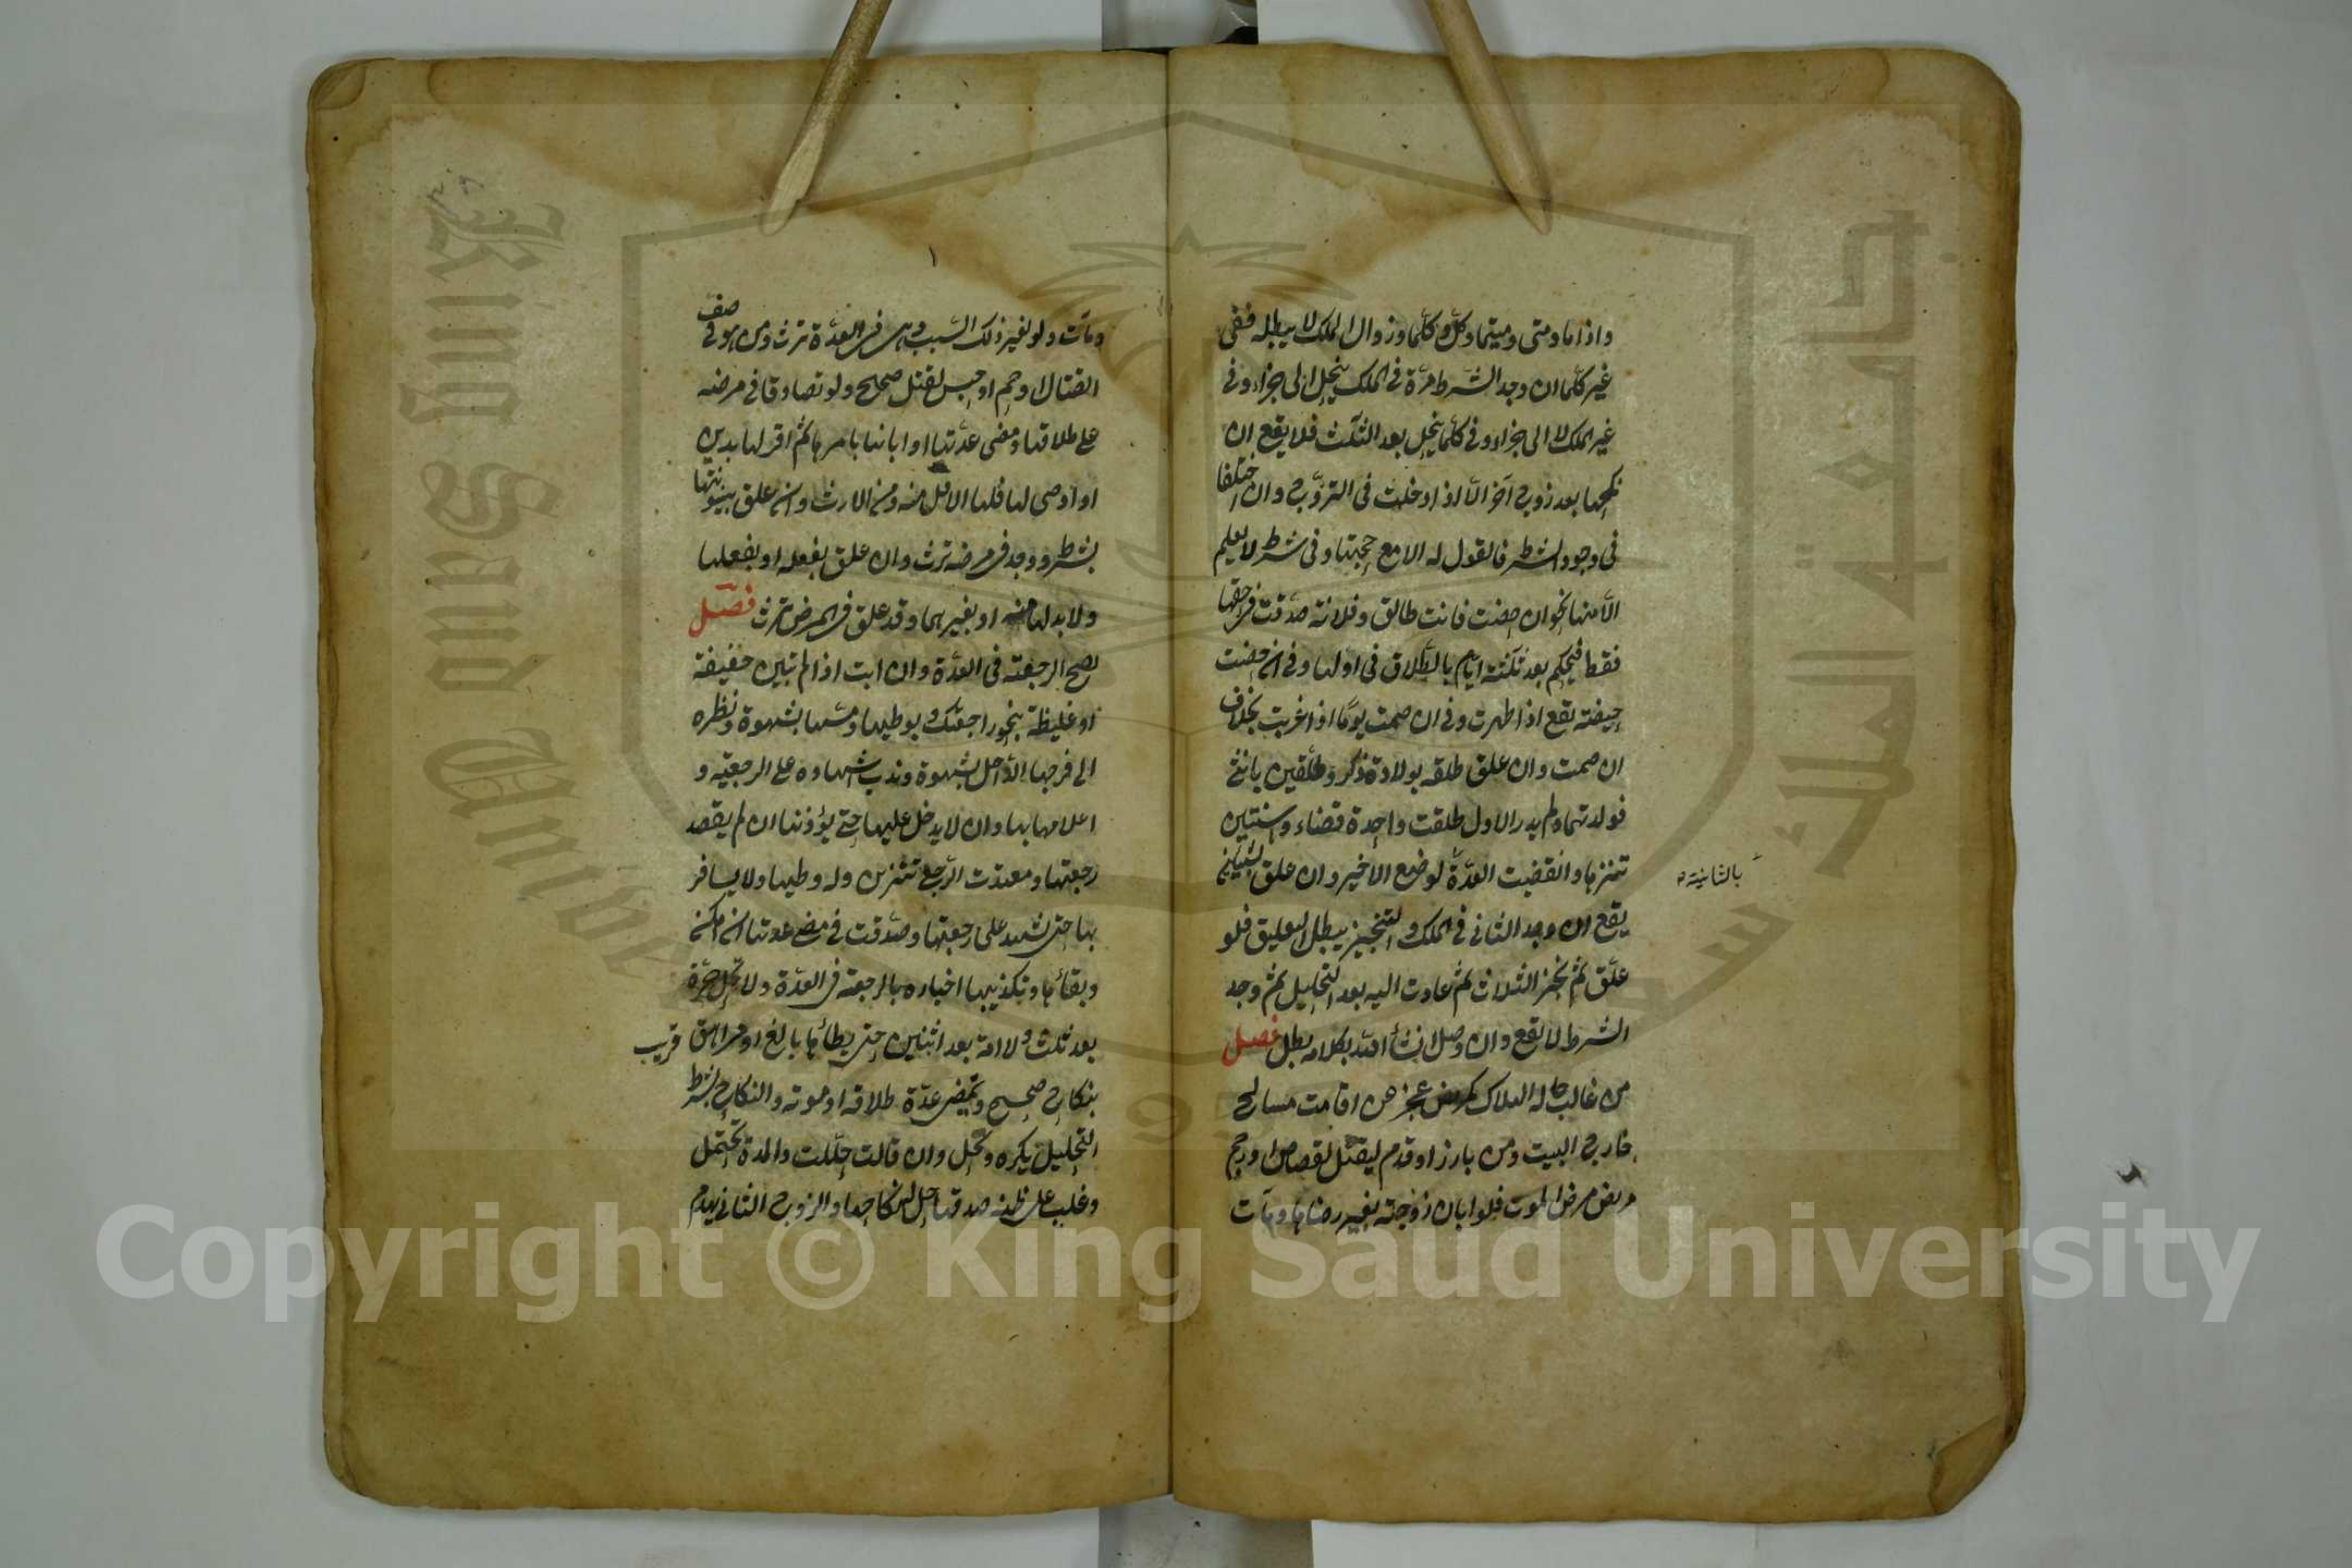 واذاما ومتى ومتيما وكل وكلما وزوال الملك لا يبطله ففى
غير كلما ان وجد الشرط مرة فى الملك ينحل الى جزاء وفى
غير الملك لا الى جزاء وفى كلما ينحل بعد الثلث فلا يقع ان
نكحها بعد زوج آخر الا اذا دخلت فى التزوج وان اختلفا
فى وجود الشرط فالقول له الا مع حجتها وفى شرط لا يعلم
الا منها نحو ان حضت فانت طالق وفلانة صدقت فى حقها
فقط فيحكم بعد ثلثة ايام بالطلاق فى اولها وفى ان حضت
حيضة يقع اذا طهرت وفى ان صمت يوما اذا غربت بخلاف
ان صمت وان علق طلقه بولادة ذكر وطلقتين بانثى
فولدتهما ولم يدر الاول طلقت واحدة قضاء واثنتين
تنزها وانقضت العدة لوضع الاخير وان علق بشيئين
بالثانية
يقع ان وجد الثانى فى الملك والتنجيز يبطل التعليق فلو
علق ثم نجز الثلاث ثم عادت اليه بعد التحليل ثم وجد
الشرط لا يقع وان وصل ان شأ الله بكلامه بطل فصل
من غالب حاله الهلاك كمريض عجز عن اقامت مصالح
خارج البيت ومن بارز او قدم ليقتل لقصاص او رجم
مريض مرض الموت فلو ابان زوجته بغير رضاها ومات
ومات ولو بغير ذلك السبب وهى فى العدة ترث ومن هو فى صف
القتال او حم او حبس لقتل صحيح ولو تصادقا فى مرضه
على طلاقها ومضى عدتها او ابانها بامرها ثم اقر لها بدين
او اوصى لها فلها الاقل منه ومن الارث وان علق بينونتها
بشرط ووجد فى مرضه ترث وان علق بفعله او بفعلها
ولا بد لها منه او بغيرهما وقد علق فى المرض ترث فصل
تصح الرجعة فى العدة وان ابت اذا لم تبين خفيفة
او غليظة بنحو راجعتك وبوطيها ومسها بشهوة ونظره
الى فرجها الداخل بشهوة وندب اشهاده على الرجعة و
اعلامها بها وان لا يدخل عليها حتى يؤذنها ان لم يقصد
رجعتها ومعتدت الرجع تتزين وله وطيها ولا يسافر
بها حتى اشهد على رجعتها وصدقت فى مضى عدتها ان امكن
وبقائها وتكذيبها اخباره بالرجعة فى العدة ولا تحل حرة
بعد ثلث ولا امة بعد اثنتين حتى يطأها بالغ او مراهق قريب
بنكاح صحيح وتمضى عدة طلاقه او موته والنكاح بشرط
التحليل يكره وتحل وان قالت حللت والمدة تحتمل
وغلب على ظنه صدقها حل له نكاحها والزوج الثانى يهدم
Copyright © King Saud University